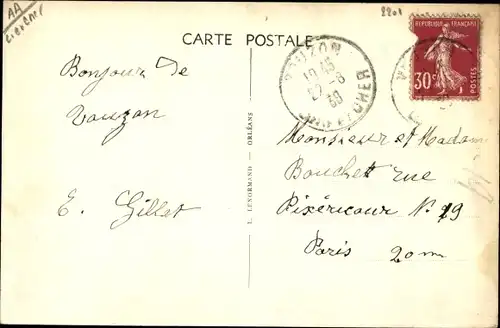 AA
2201
CARTE POSTALE
REPUBLIQUE FRANÇAISE
30c
POSTES
VOUZON
19 45
22-8
39
LOIR ET CHER
Bonjour de
Vouzon
E. Gillet
L. LENORMAND - ORLÉANS
Monsieur et Madame
Bouchet rue
Pixéricour N. 19
Paris 20m